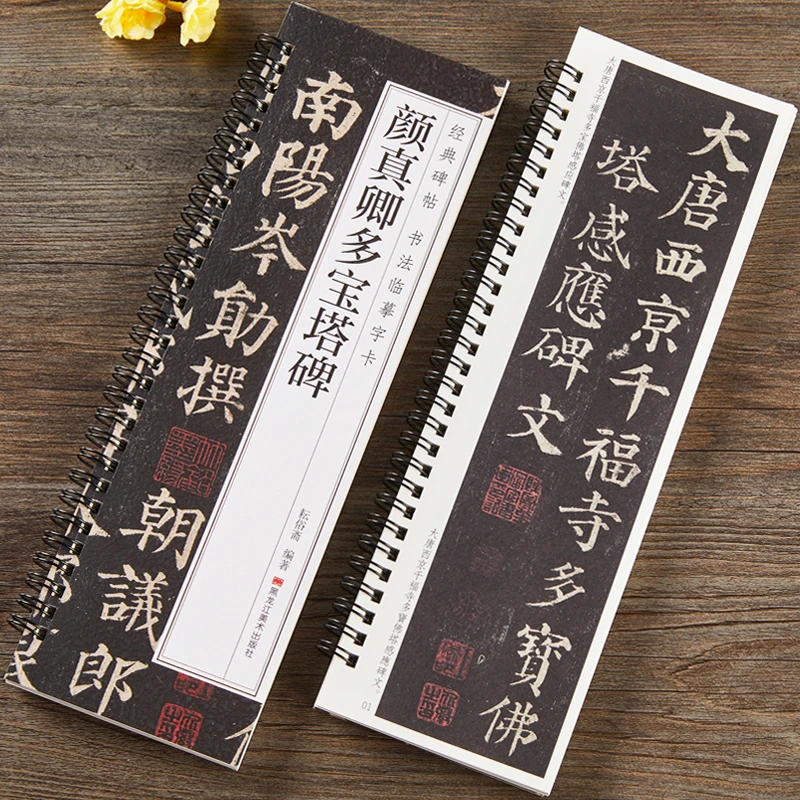 南陽岑勛撰
朝議郎
经典碑帖 书法临摹字卡
颜真卿多宝塔碑
耘俗斋 编著
黑龙江美术出版社
大唐西京千福寺多宝佛塔感应碑文。
大唐西京千福寺多寶佛
塔感應碑文
大唐西京千福寺多寶佛塔感應碑文。
01